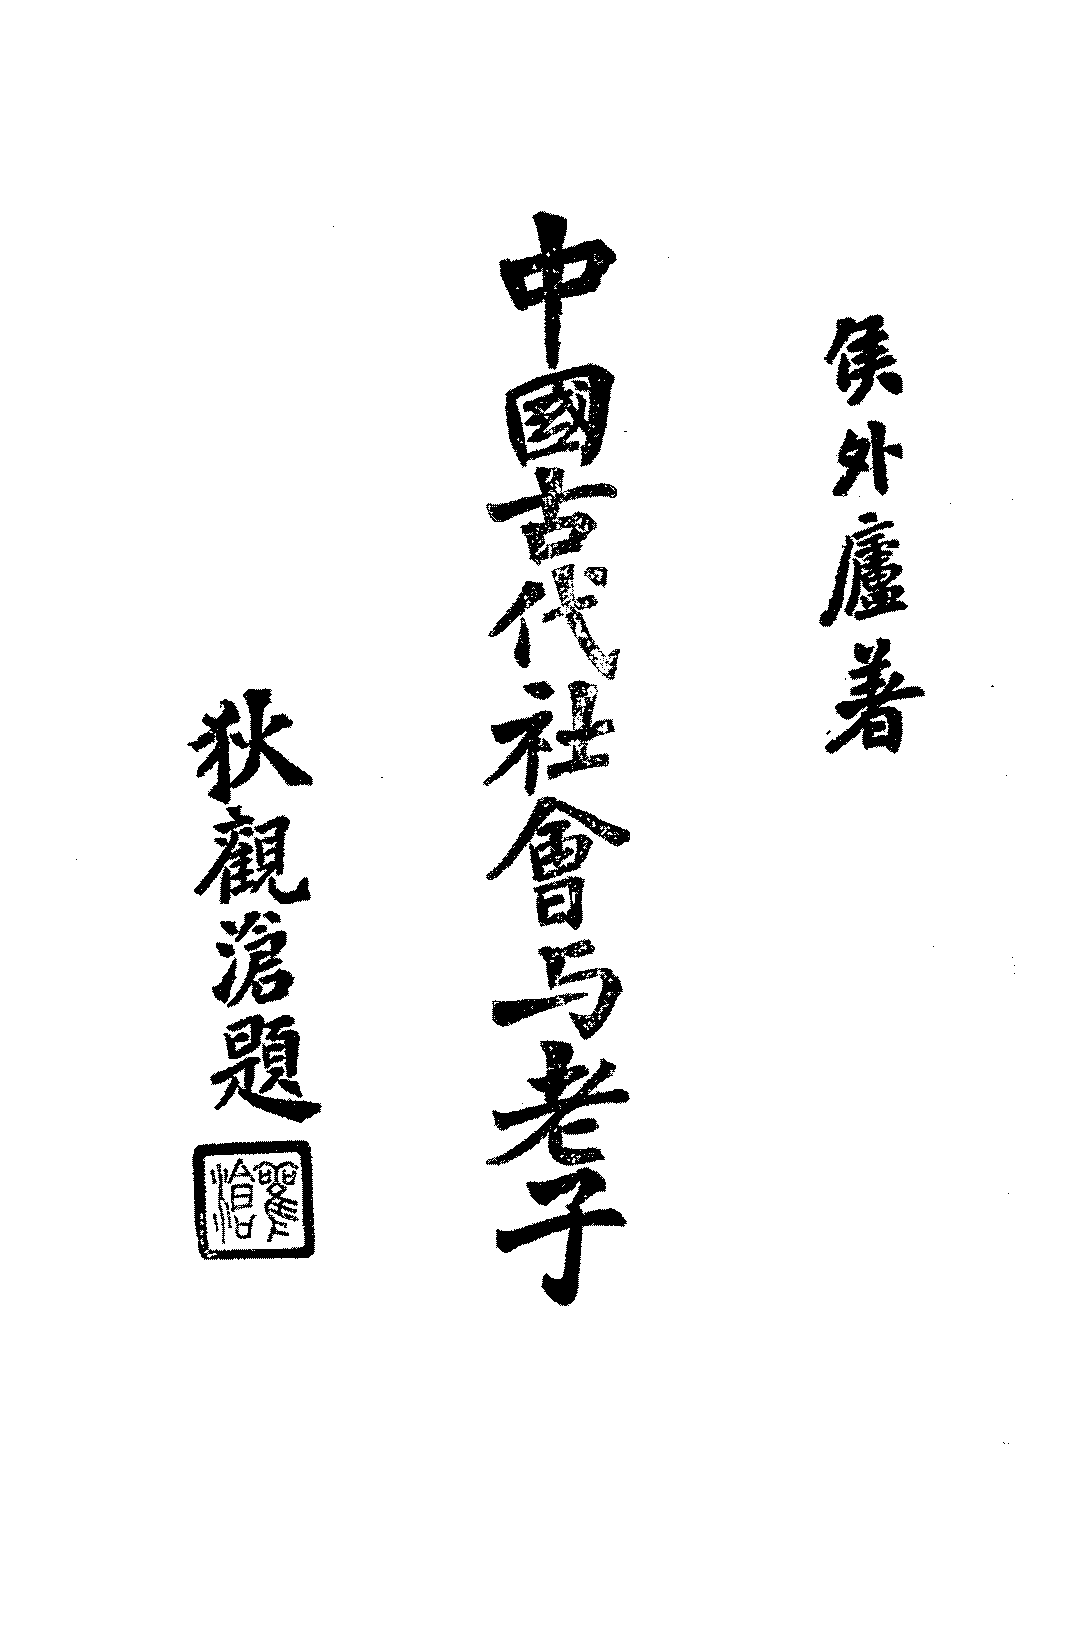 侯外廬著
中國古代社會与老子
狄觀滄題
觀滄